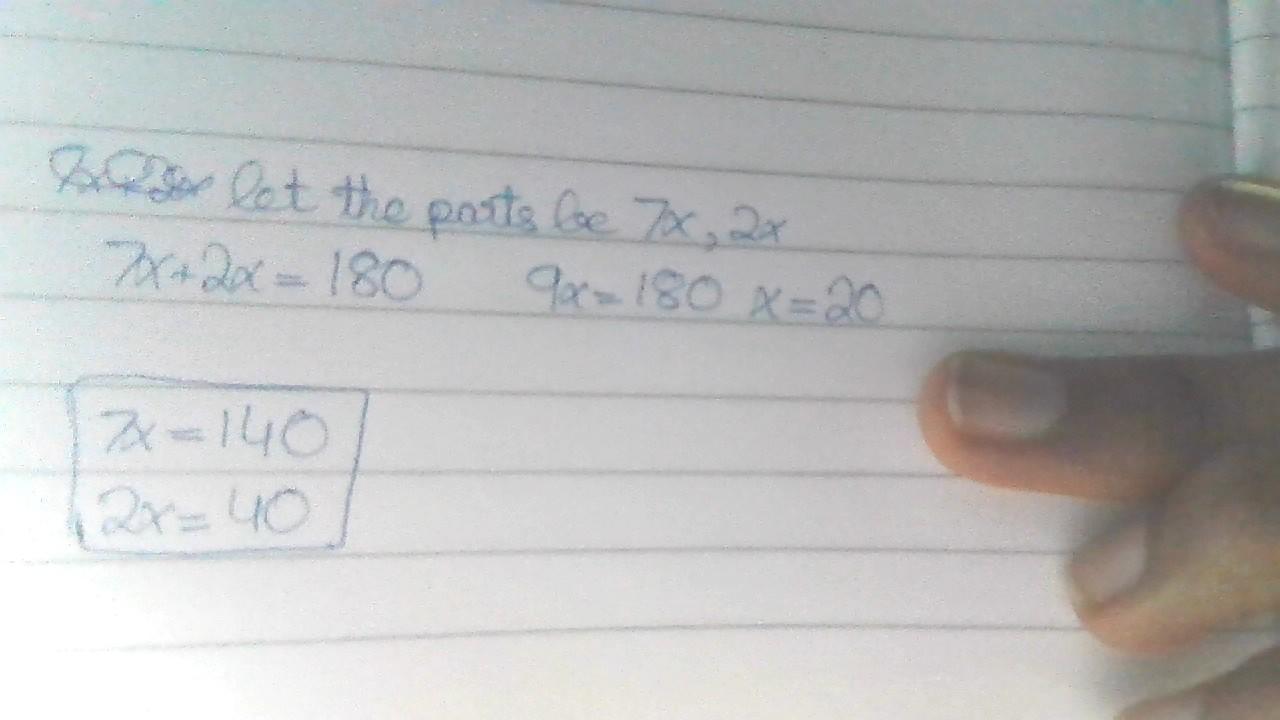 let the parts be 7x, 2x
7x+2x=180 9x=180 x=20
7x=140
2x=40